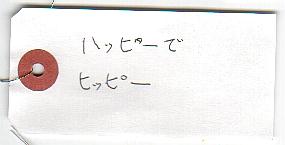 ハッピーで
ヒッピー